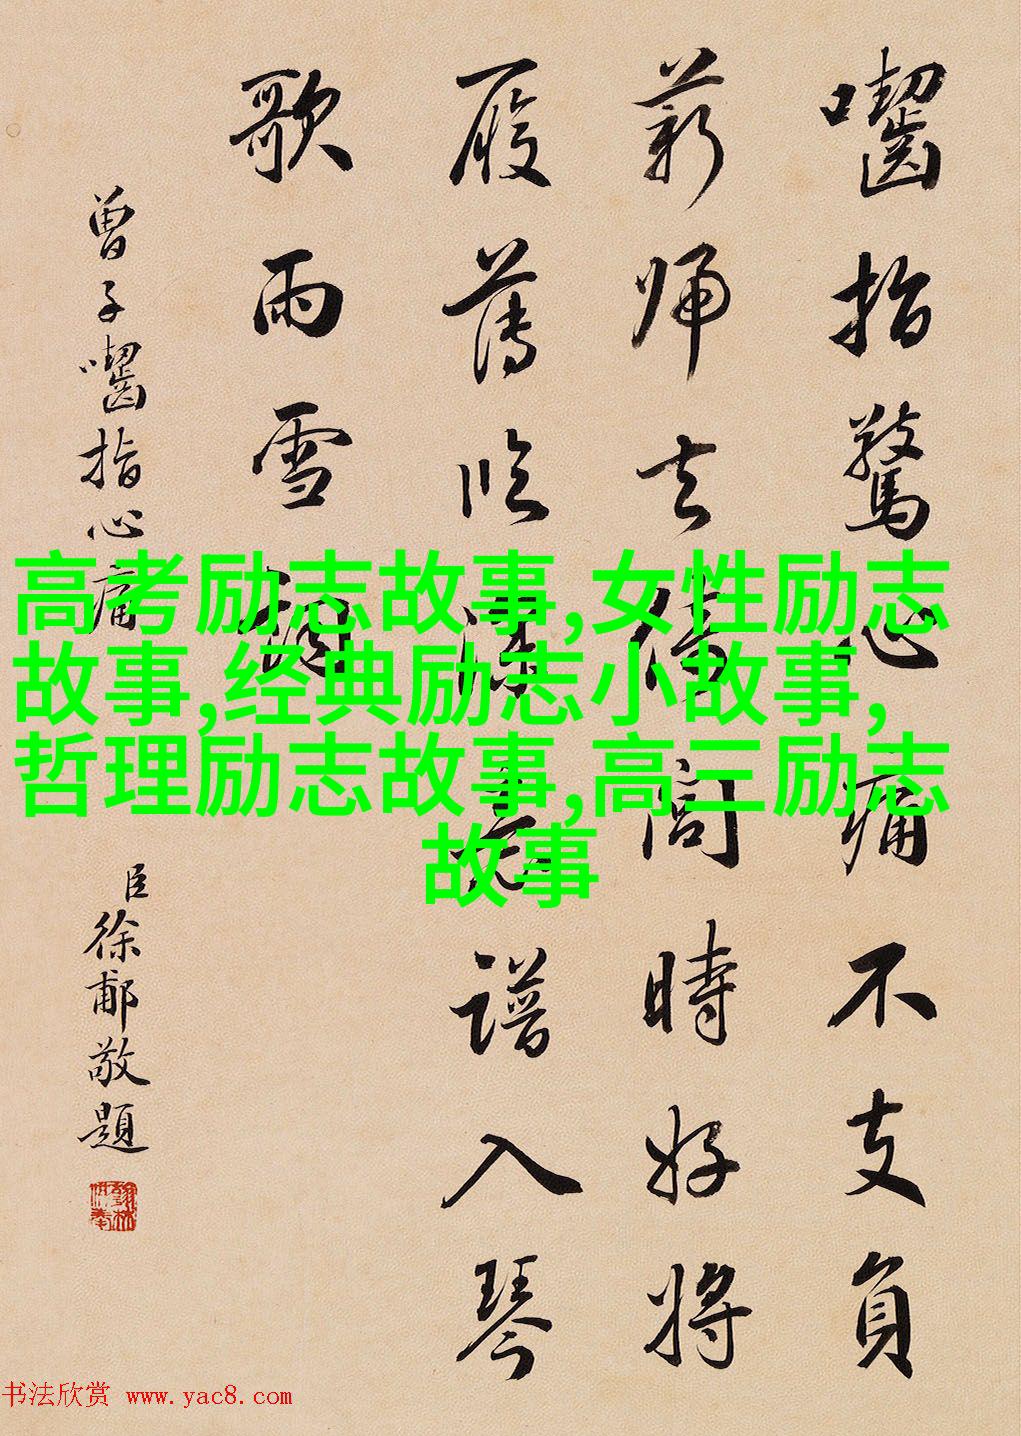 囓指驚心痛不支負
薪歸去倚閭時好將
履薄臨深意譜入琴
歌雨雪
曾子囓指心痛
臣徐郙敬題
高考励志故事,女性励志
故事,经典励志小故事,
哲理励志故事,高三励志
故事
书法欣赏 www.yac8.com